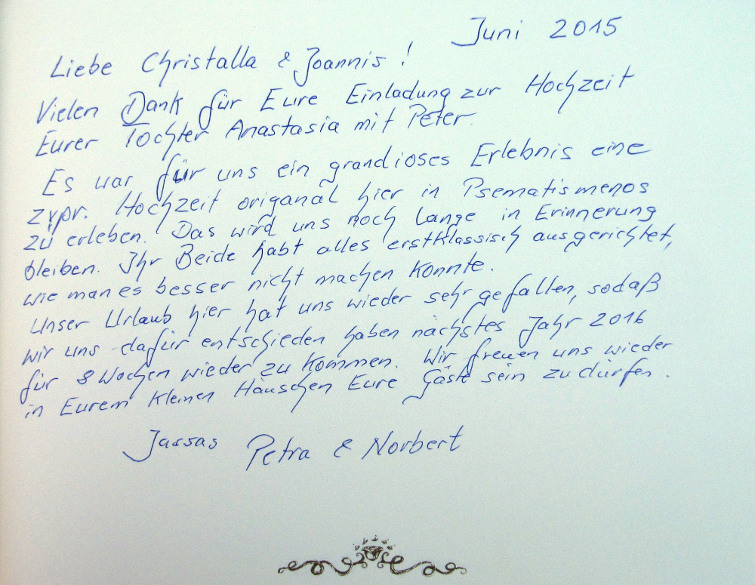 Juni 2015
Liebe Christalla & Joannis!
Vielen Dank für Eure Einladung zur Hochzeit
Eurer Tochter Anastasia mit Peter.
Es war für uns ein grandioses Erlebnis eine
zypr. Hochzeit origanal hier in Psematismenos
zu erleben. Das wird uns noch lange in Erinnerung
bleiben. Ihr Beide habt alles erstklassisch ausgerichtet,
wie man es besser nicht machen konnte.
Unser Urlaub hier hat uns wieder sehr gefallen, sodaß
wir uns dafür entschieden haben nächstes Jahr 2016
für 8 Wochen wieder zu kommen. Wir freuen uns wieder
in Eurem kleinen Häuschen Eure Gäste sein zu dürfen.
Jassas Petra & Norbert